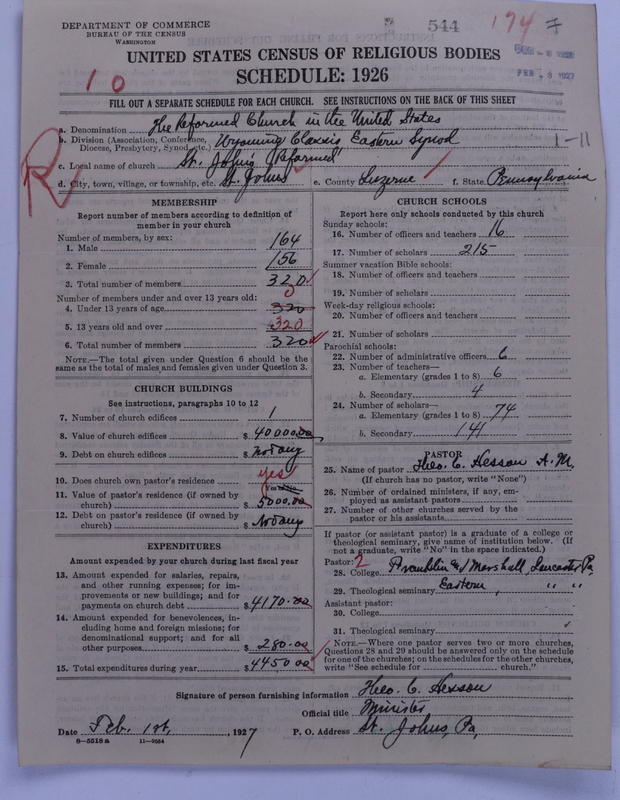 DEPARTMENT OF COMMERCE
BUREAU OF THE CENSUS
WASHINGTON
544
174
FEB -8 1927
UNITED STATES CENSUS OF RELIGIOUS BODIES
SCHEDULE: 1926
10
FILL OUT A SEPARATE SCHEDULE FOR EACH CHURCH. SEE INSTRUCTIONS ON THE BACK OF THIS SHEET
R
a. Denomination The Reformed Church in the United States
b. Division (Association, Conference, Diocese, Presbytery, Synod, etc.) Wyoming Classis Eastern Synod
1-11
c. Local name of church St. John's Reformed
d. City, town, village, or township, etc. St. Johns e. County Luzerne f. State Pennsylvania
MEMBERSHIP
Report number of members according to definition of
member in your church
Number of members, by sex:
1. Male 164
2. Female 156
3. Total number of members 320
Number of members under and over 13 years old:
4. Under 13 years of age 320 0
5. 13 years old and over 320
6. Total number of members 320
NOTE.—The total given under Question 6 should be the
same as the total of males and females given under Question 3.
CHURCH BUILDINGS
See instructions, paragraphs 10 to 12
7. Number of church edifices 1
8. Value of church edifices $ 40000.00
9. Debt on church edifices $ Not any
10. Does church own pastor's residence yes
11. Value of pastor's residence (if owned by
church) $ 5000.00
12. Debt on pastor's residence (if owned by
church) $ Not any
EXPENDITURES
Amount expended by your church during last fiscal year
13. Amount expended for salaries, repairs,
and other running expenses; for im-
provements or new buildings; and for
payments on church debt $ 4170.00
14. Amount expended for benevolences, in-
cluding home and foreign missions; for
denominational support; and for all
other purposes $ 280.00
15. Total expenditures during year $ 4450.00
CHURCH SCHOOLS
Report here only schools conducted by this church
Sunday schools:
16. Number of officers and teachers 16
17. Number of scholars 215
Summer vacation Bible schools:
18. Number of officers and teachers
19. Number of scholars
Week-day religious schools:
20. Number of officers and teachers
21. Number of scholars
Parochial schools:
22. Number of administrative officers 6
23. Number of teachers—
a. Elementary (grades 1 to 8) 6
b. Secondary 4
24. Number of scholars—
a. Elementary (grades 1 to 8) 74
b. Secondary 141
PASTOR
25. Name of pastor Theo. C. Hesson A.M.
(If church has no pastor, write "None")
26. Number of ordained ministers, if any, em-
ployed as assistant pastors
27. Number of other churches served by the
pastor or his assistants
If pastor (or assistant pastor) is a graduate of a college or
theological seminary, give name of institution below. (If
not a graduate, write "No" in the space indicated.)
Pastor: 2
28. College Franklin & Marshall, Lancaster, Pa.
29. Theological seminary Eastern " "
Assistant pastor:
30. College
31. Theological seminary
NOTE.—Where one pastor serves two or more churches,
Questions 28 and 29 should be answered only on the schedule
for one of the churches; on the schedules for the other churches,
write "See schedule for church."
Signature of person furnishing information Theo. C. Hesson
Official title Minister
Date Feb. 1st, 1927 P. O. Address St. Johns, Pa.
8-5518a 11-9554